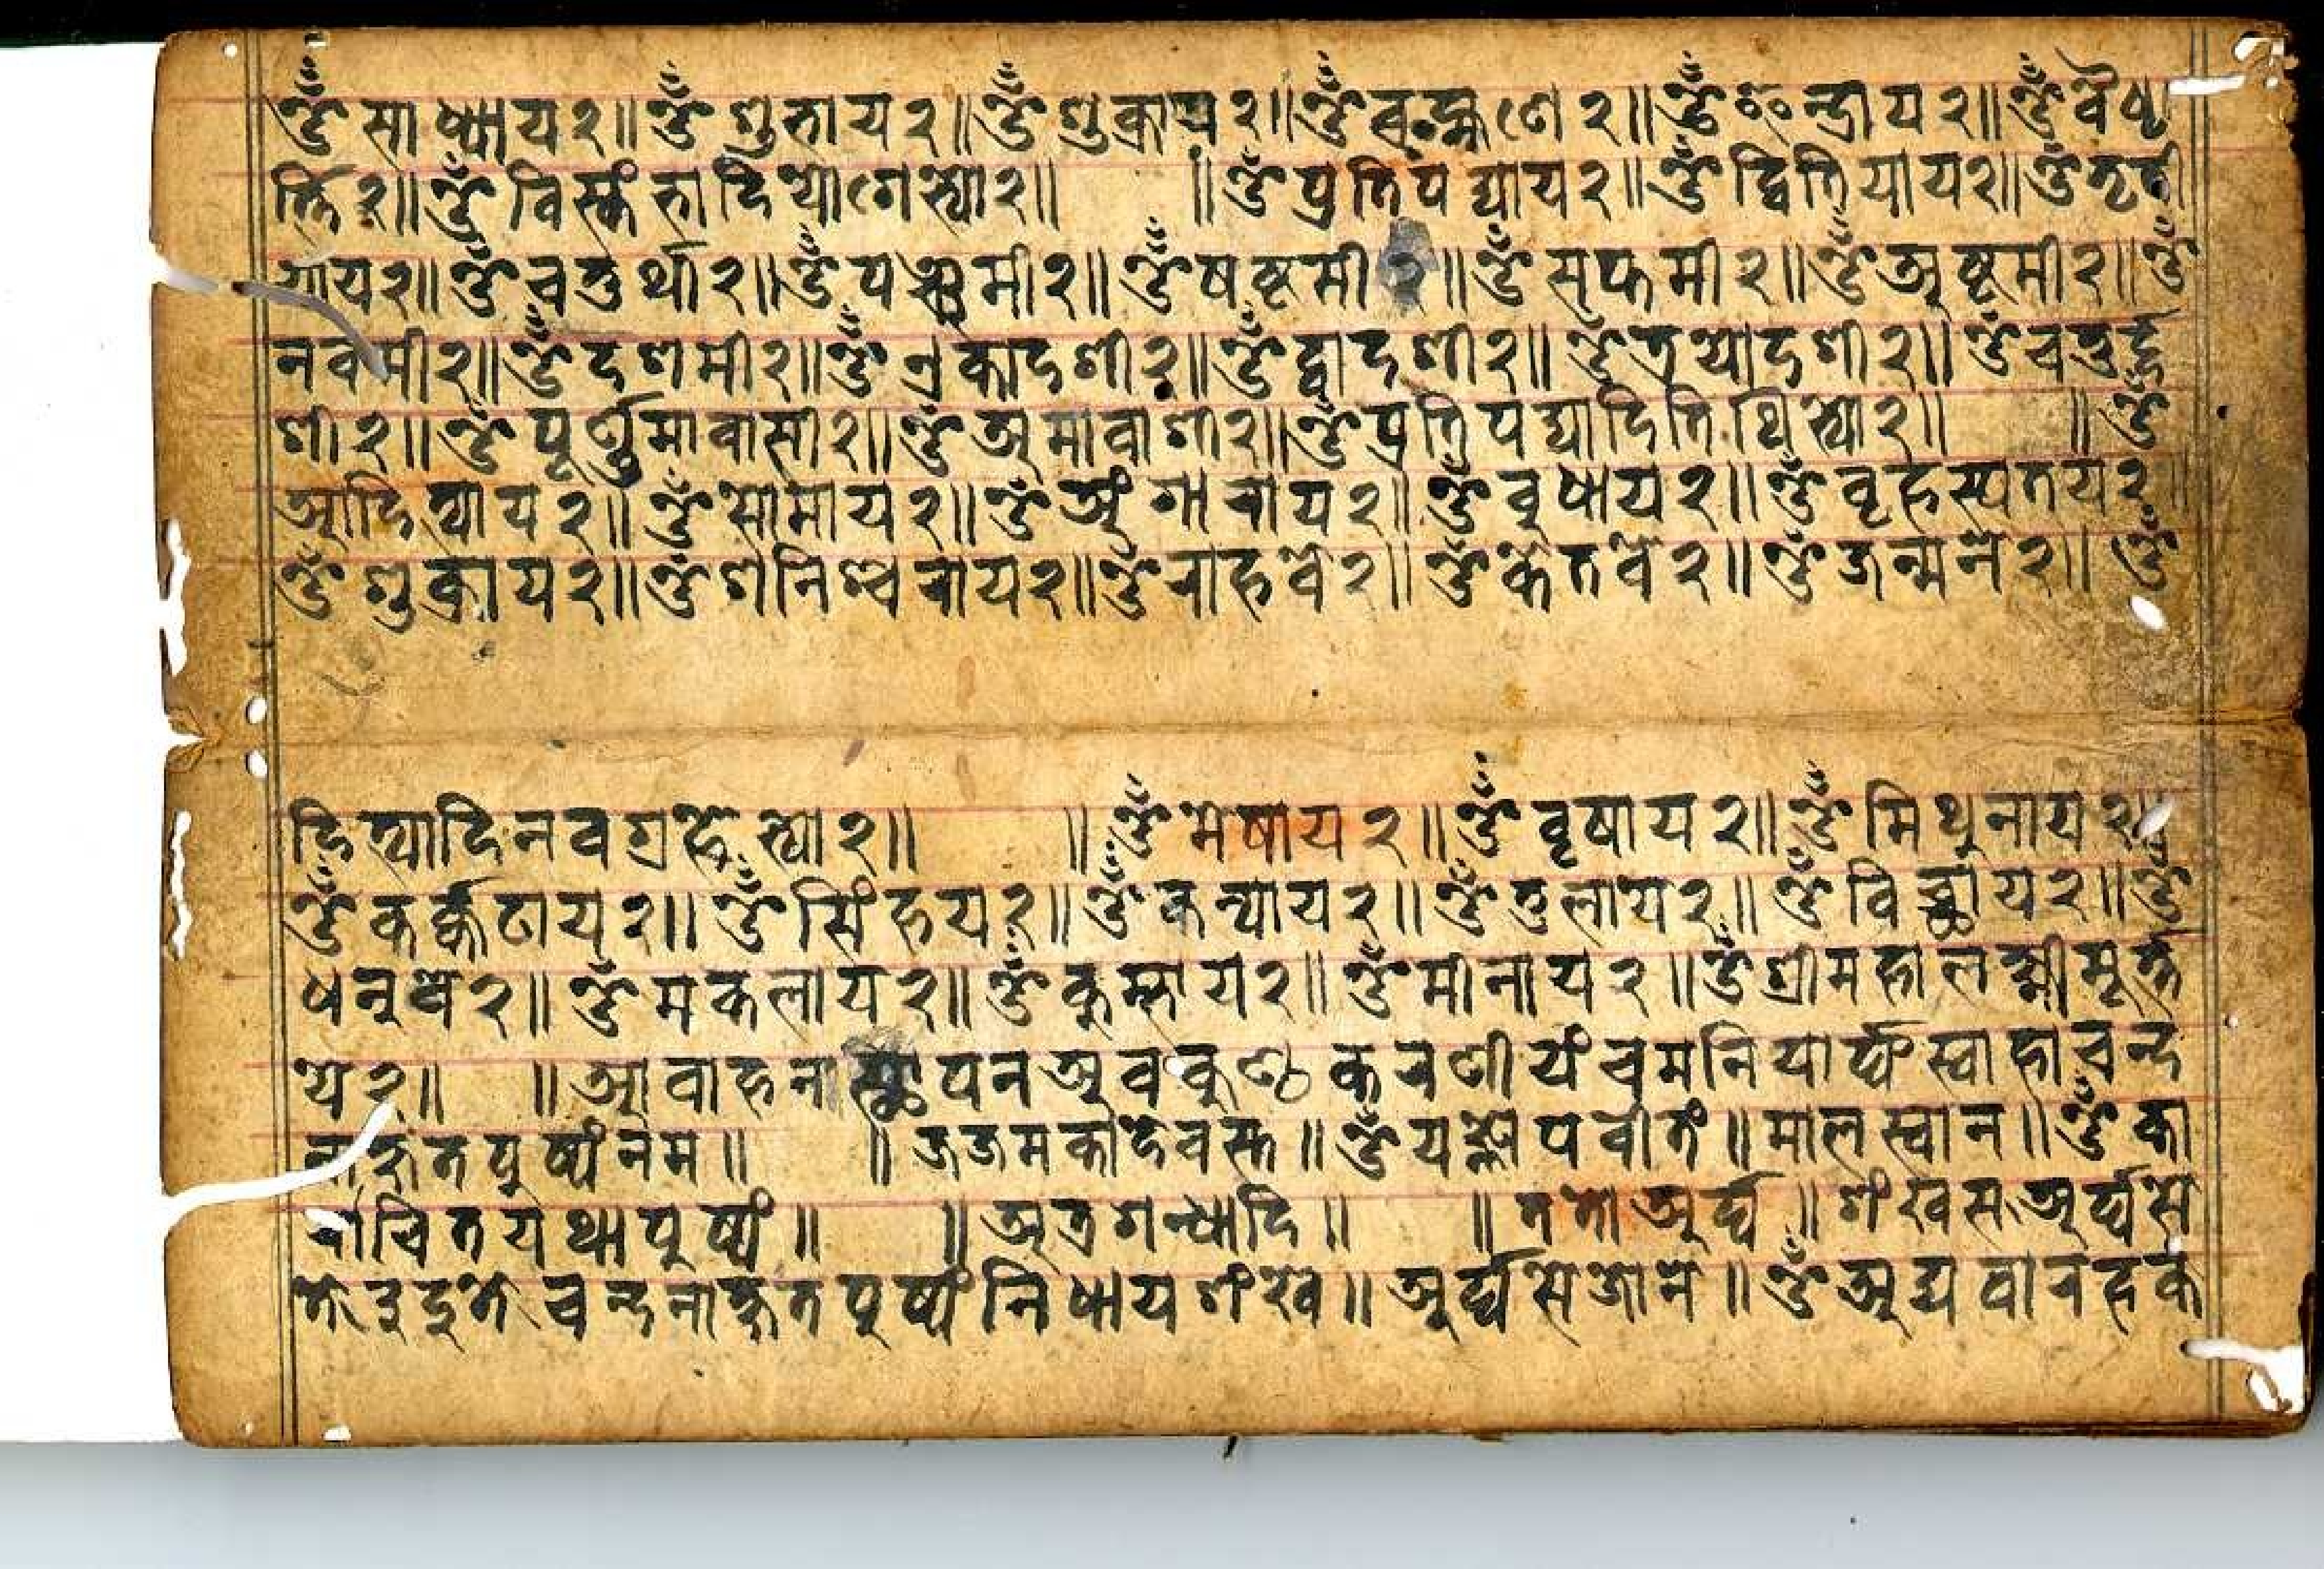 ॐ साध्याय२॥ॐ शुभाय२॥ॐ शुक्राय२॥ॐ ब्रह्मणे२॥ॐ इन्द्राय२॥ॐ वैधृ
र्त्ति२॥ॐ विस्कंभादियोगेभ्यो२॥ ॥ॐ प्रतिपद्याय२॥ॐ द्वितियाय२॥ॐ तृती
याय२॥ॐ चतुर्थी२॥ॐ पञ्चमी२॥ॐ षष्टमी२॥ॐ सप्तमी२॥ॐ अष्टमी२॥ॐ
नवमी२॥ॐ दशमी२॥ॐ एकादशी२॥ॐ द्वादशी२॥ॐ त्रयोदशी२॥ॐ चतुर्द्द
शी२॥ॐ पूर्ण्णमावासी२॥ॐ अमावाशी२॥ॐ प्रतिपद्यादितिथिभ्यो२॥ ॥ॐ
आदित्याय२॥ॐ सोमाय२॥ॐ अंगाराय२॥ॐ बुधाय२॥ॐ वृहस्पतय२॥
ॐ शुक्राय२॥ॐ शनिश्चराय२॥ॐ राहवे२॥ॐ केतवे२॥ॐ जन्मने२॥ॐ
दित्यादिनवग्रहेभ्यो२॥ ॥ॐ मेषाय२॥ॐ वृषाय२॥ॐ मिथुनाय२॥
ॐ कर्क्कटाय२॥ॐ सिंहय२॥ॐ कन्याय२॥ॐ तुलाय२॥ॐ विच्छाय२॥ॐ
धनुषे२॥ॐ मकलाय२॥ॐ कुम्भाय२॥ॐ मीनाय२॥ॐ श्रीमहालक्ष्मीमूर्त्त
य२॥ ॥आवाहनास्थापनअवकुण्ठकरणीयंचमनियार्घ्यंस्वाहाचन्द
नाक्षतपुष्पंनम॥ ॥जजमकादेवस्क॥ॐ यज्ञोपवीतं॥मालस्वान॥ॐ का
र्याचितयथापुष्पं॥ ॥अत्रगन्धादि॥ ॥ततोअर्घ्य॥शंखसअर्घ्यसे
चन्दनाक्षतपुष्पंनिधायशंखे॥अर्घ्यसेजोने॥ॐ अद्यवारहक